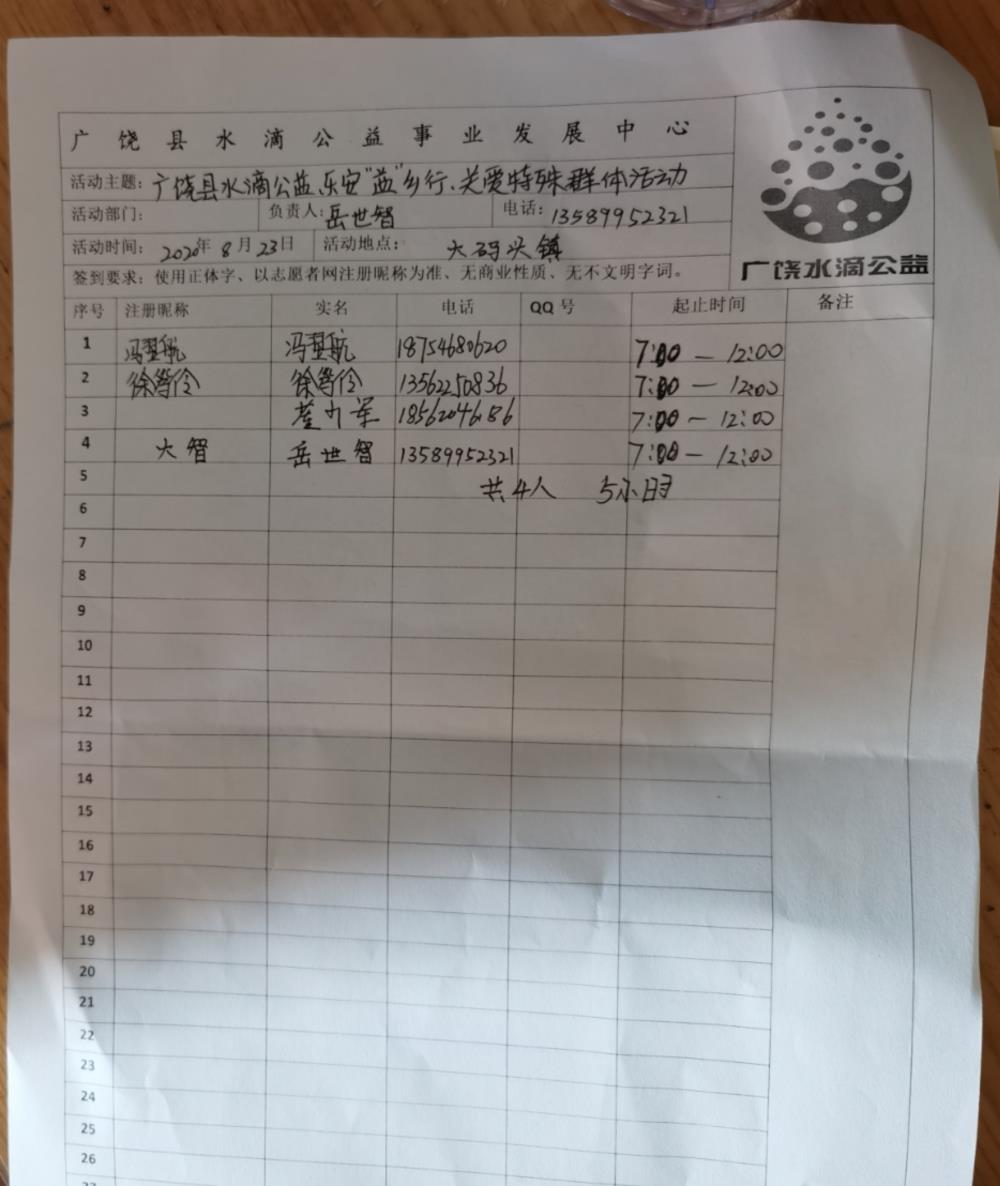 广饶县水滴公益事业发展中心
活动主题：广饶县水滴公益、乐安"益"乡行、关爱特殊群体活动
活动部门： 负责人：岳世智 电话：13589952321
活动时间： 2020年8月23日 活动地点： 大码头镇
签到要求：使用正体字、以志愿者网注册昵称为准、无商业性质、无不文明字词。
广饶水滴公益
序号 注册昵称 实名 电话 QQ号 起止时间 备注
1 冯翌航 冯翌航 18754680620 7:00 — 12:00
2 徐 伶 徐 伶 13562250836 7:00 — 12:00
3 军 18562046186 7:00 — 12:00
4 大智 岳世智 13589952321 7:00 — 12:00
5 共4人 5小时
6
7
8
9
10
11
12
13
14
15
16
17
18
19
20
21
22
23
24
25
26